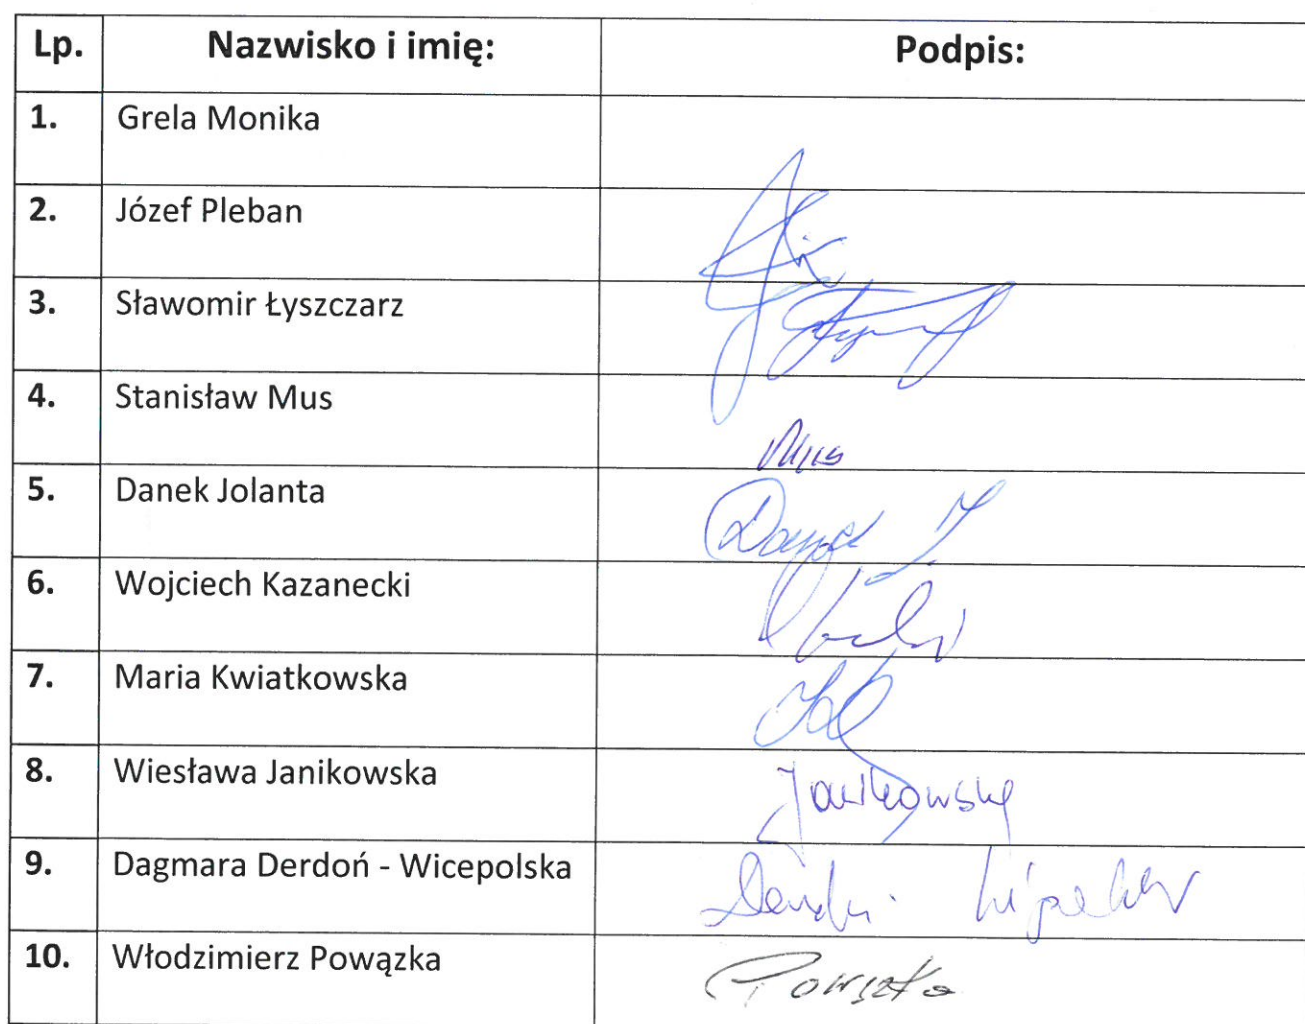 Lp. Nazwisko i imię: Podpis:
1. Grela Monika
2. Józef Pleban
3. Sławomir Łyszczarz
4. Stanisław Mus Mus
5. Danek Jolanta Danek J
6. Wojciech Kazanecki
7. Maria Kwiatkowska
8. Wiesława Janikowska Janikowska
9. Dagmara Derdoń - Wicepolska
10. Włodzimierz Powązka Powązka